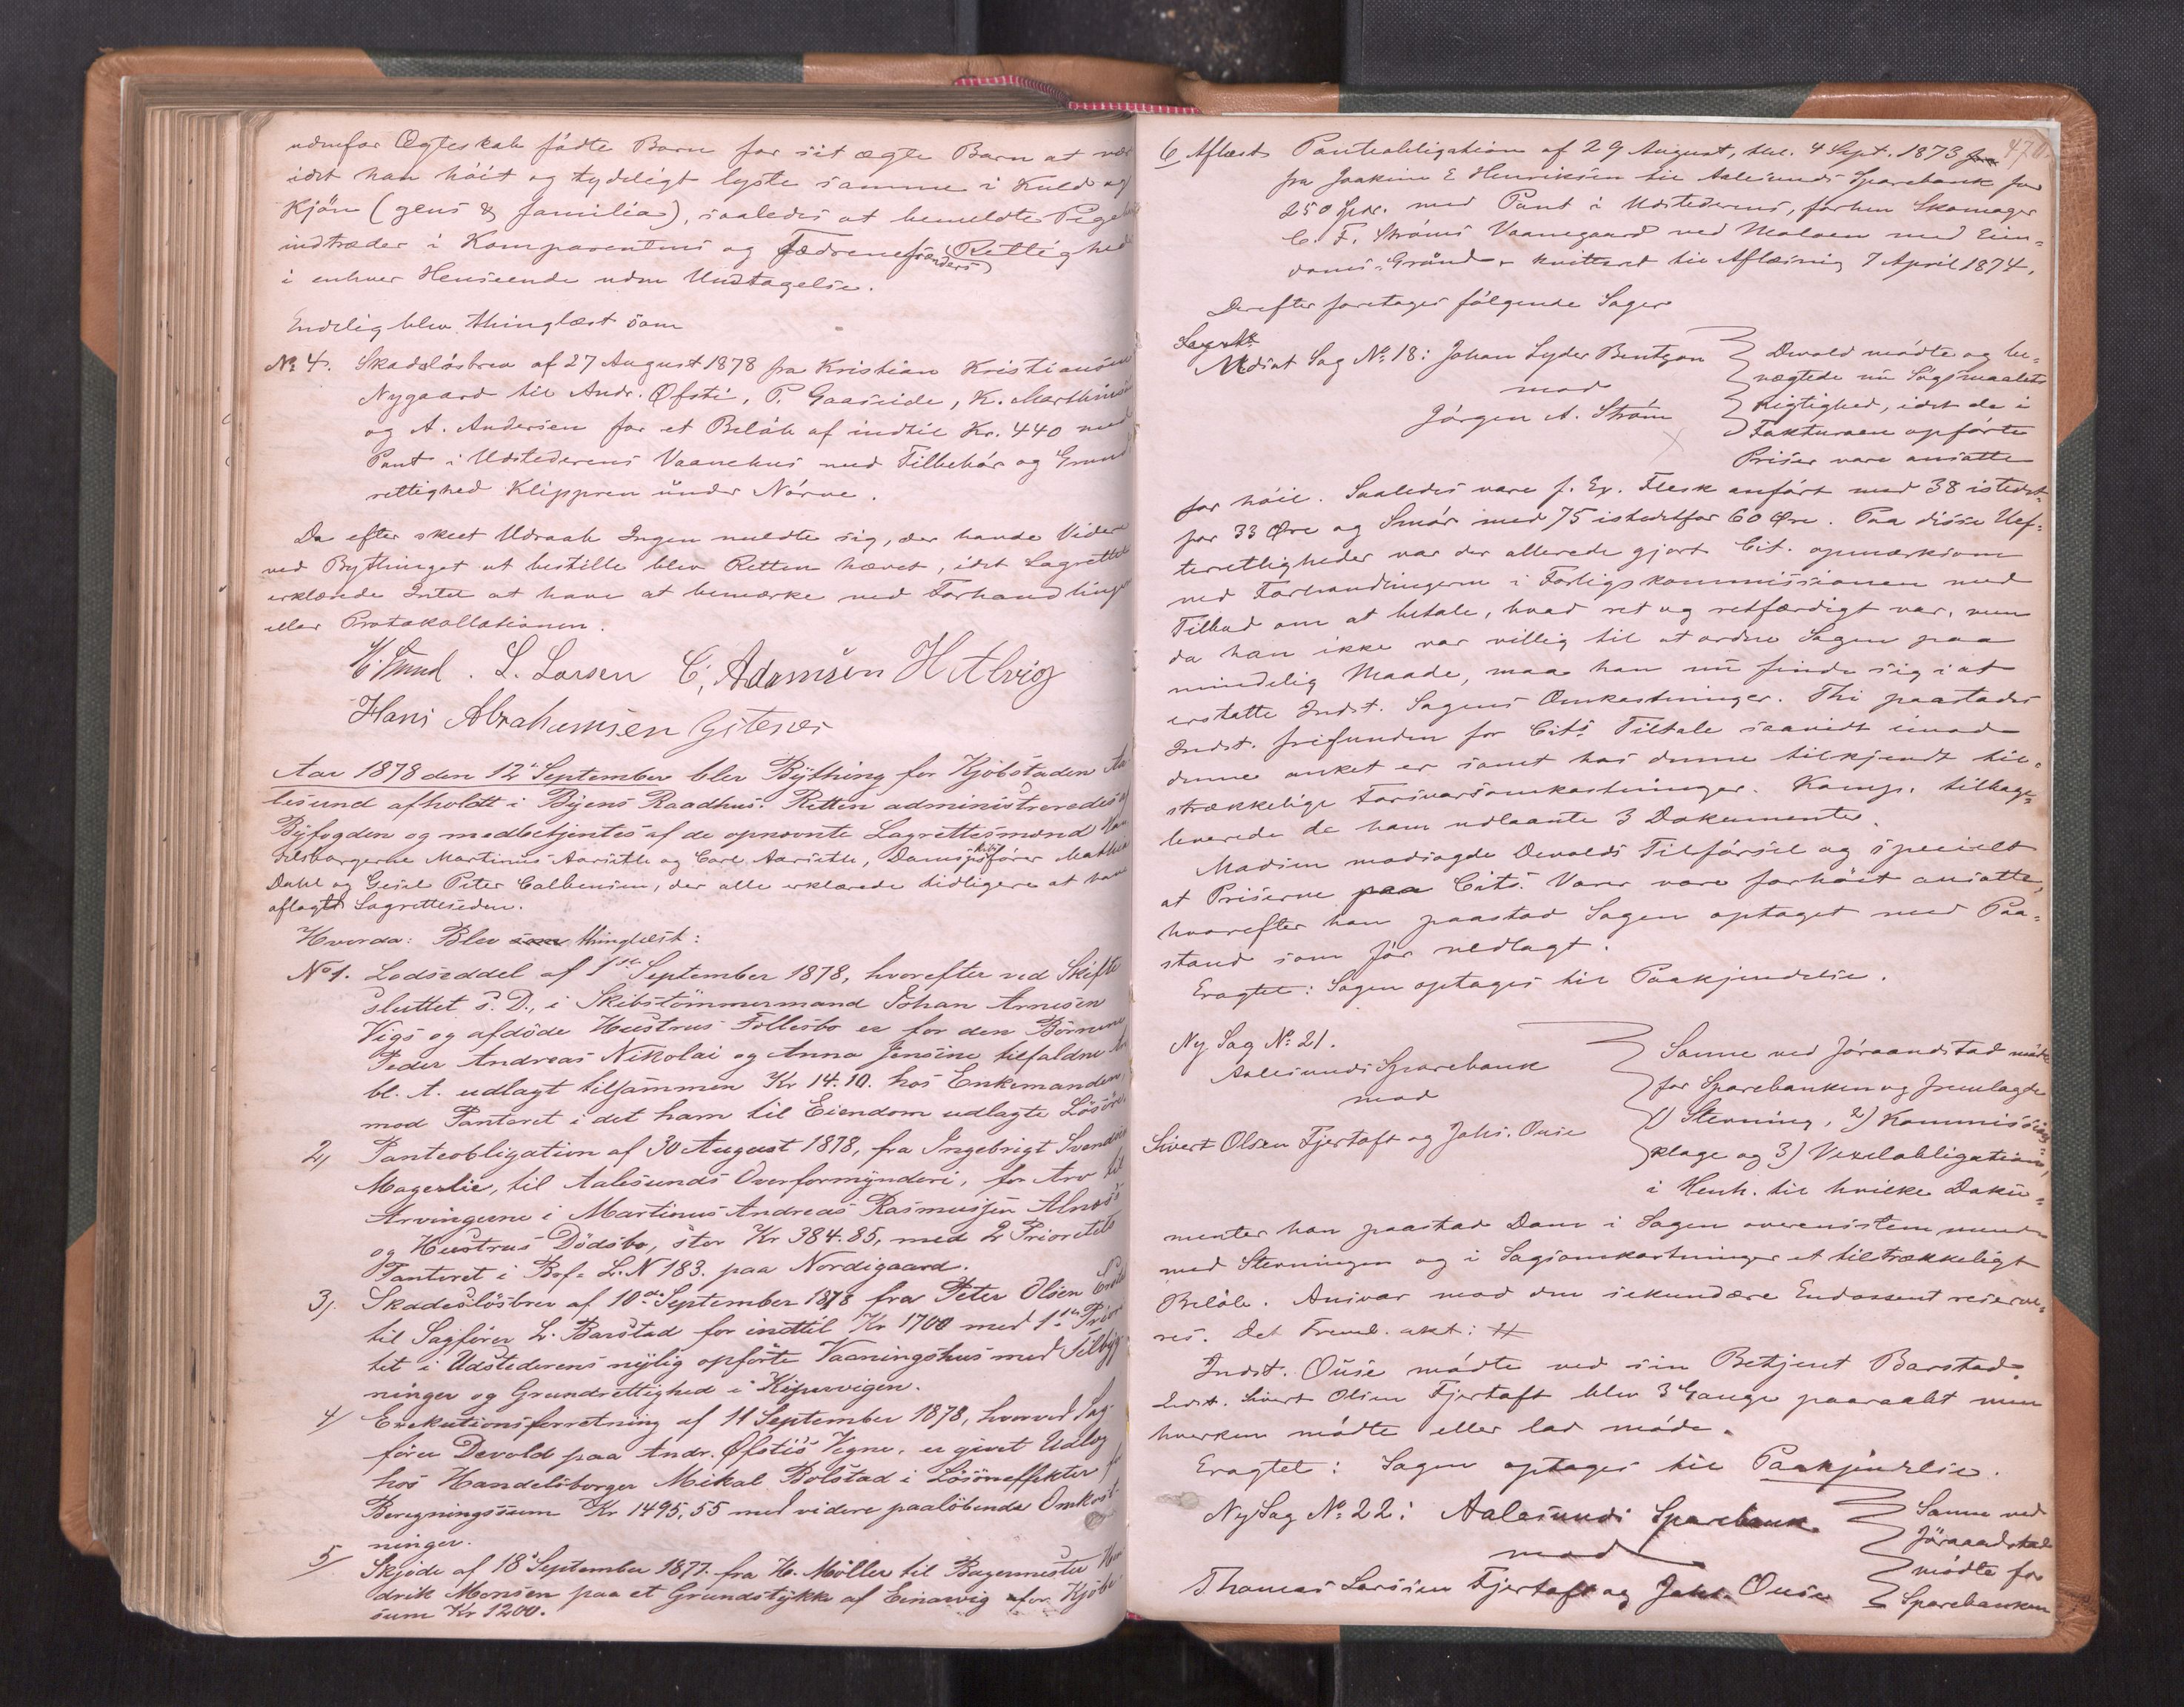 udenfor Ægteskab födte Barn for sit ægte Barn at være
idet han höit og tydeligt lyste samme i Kuld og
Kjön (gens & familia), saaledes at bemeldte Pigebarn
indtræder i Komparentens og Fædrenefrænders Rettigheder
i enhver Henseende uden Undtagelse.
Endelig blev thinglæst som
No 4. Skadelösbrev af 27 August 1878 fra Kristian Kristiansen
Nygaard til Andr. Öfsti, P. Gaaseide, K. Marthinsen
og A. Andersen for et Belöb af indtil Kr. 440 med
Pant i Udstederens Vaanehus med Tilbehör og Grund-
rettighed Klippren under Nörve.
Da efter skeet Udraab Ingen meldte sig, der havde Videre
ved Bythinget at bestille blev Retten hævet, idet Lagrettet
erklærede Intet at have at bemærke ved Forhandlingen
eller Protokollationen.
L. Larsen C. Adamsen H Alvig
Hans Abrahamsen Gjitenes
Aar 1878 den 12te September blev Bything for Kjöbstaden Aa
lesund afholdt i Byens Raadhus. Retten administreredes af
Byfogden og medbetjentes af de opnævnte Lagrettesmænd Han
delsborgerne Martinus Aarseth og Carl Aarseth, Dampskibsförer Mathias
Dahl og Gjest Peter Calbensen, der alle erklærede tidligere at have
aflagt Lagretteseden.
Hvorda: Blev som thinglæst:
No 1. Lodseddel af 1ste September 1878, hvorefter ved Skifte
sluttet s. D., i Skibstömmermand Johan Arnesen
Vigs og afdöde Hustrus Fællesbo er for den Börnene
Peder Andreas Nikolai og Anna Jensine tilfaldne Arv
bl. A. udlagt tilsammen Kr 14.10. hos Enkemanden,
mod Panteret i det ham til Eiendom udlagte Lösöre.
2, Panteobligation af 30 August 1878, fra Ingebrigt Svendsen
Magerlie, til Aalesunds Overformynderi, for Arv til
Arvingerne i Martinus Andreas Rasmussen Alnæs's
og Hustrus Dödsbo, stor Kr 384.85, med 2 Prioritets
Panteret i Bof. L. N 183. paa Nordigaard.
3, Skadeslösbrev af 10de September 1878 fra Peter Olsen
til Sagförer L. Barstad for indtil Kr 1700 med 1ste Priori
tet i Udstederens nylig opförte Vaaningshus med Tilbyg
ninger og Grundrettighed i Kipervigen.
4/ Exekutionsforretning af 11 September 1878, hvorved Sag
förer Devold paa Andr. Öfsti's Vegne, er givet Udlæg
hos Handelsborger Mikal Bolstad i Lösöreffekter for
Beregningssum Kr 1495,55 med videre paalöbende Omkost-
ninger.
5/ Skjöde af 18de September 1877. fra H. Möller til Bagermester Hen
drik Monsen paa et Grundstykke af Einarvig for Kjöbe
sum Kr 1200.
470.
6 Aflæst Panteobligation af 29 August, thl. 4 Sept. 1873
fra Joakim E Henriksen til Aalesunds Sparebank for
250 Spdr. med Pant i Udstederens, forhen Skomager
C. F. Ströms Vaanegaard ved Moloen med Eien-
doms-Grund, kvitteret til Aflæsning 7 April 1874.
Derefter foretages fölgende Sager
Udsat Sag No 18: Johan Lyder Bentzon
mod
Jörgen A. Ström
Devold mödte og be-
nægtede nu Sögsmaalets
Rigtighed, idet de i
Fakturaen opförte
Priser vare ansatte
for höie. Saaledes vare f. Ex. Flesk anfört med 38 istedet-
for 33 Öre og Smör med 75 istedetfor 60 Öre. Paa disse Uef-
terretligheder var der allerede gjort Cit. opmærksom
ved Forhandlingerne i Forligskommissionen med
Tilbud om at betale, hvad ret og retfærdigt var, men
da han ikke var villig til at ordne Sagen paa
mindelig Maade, maa han nu finde sig i at
erstatte Indst. Sagens Omkostninger. Thi paastodes
Indst. frifunden for Cits Tiltale saavidt imod
denne anket er samt hos denne tilkjendt til-
strækkelige Forsvarsomkostninger. Komp. tilbage-
leverede de ham udlaante 3 Dokumenter.
Madsen modsagde Devolds Tilförsel og specielt
at Priserne paa Cits. Varer vare forhöit ansatte,
hvorefter han paastod Sagen optaget med Paa-
stand som för nedlagt.
Eragtet: Sagen optages til Paakjendelse.
Ny Sag No 21.
Aalesunds Sparebank
mod
Sivert Olsen Fjertoft og Johs. Ouse
Sanne ved Jöraandstad mödte
for Sparebanken og fremlagde
1) Stevning, 2) Kommissions-
klage og 3) Vexelobligation,
i Henh. til hvilke Doku-
menter han paastod Dom i Sagen overensstemmende
med Stevningen og i Sagsomkostninger et tilstrækkeligt
Belöb. Ansvar mod den sekundære Endossent reserve-
res. Det Freml. akt: #
Indst. Ouse mödte ved sin Betjent Barstad.
Indst. Sivert Olsen Fjertoft blev 3 Gange paaraabt men
hverken mödte eller lod möde.
Eragtet: Sagen optages til Paakjendelse.
Ny Sag No 22: Aalesunds Sparebank
mod
Thomas Larssen Fjertoft og Johs. Ouse
Sanne ved
Jöraandstad
mödte for
Sparebanken